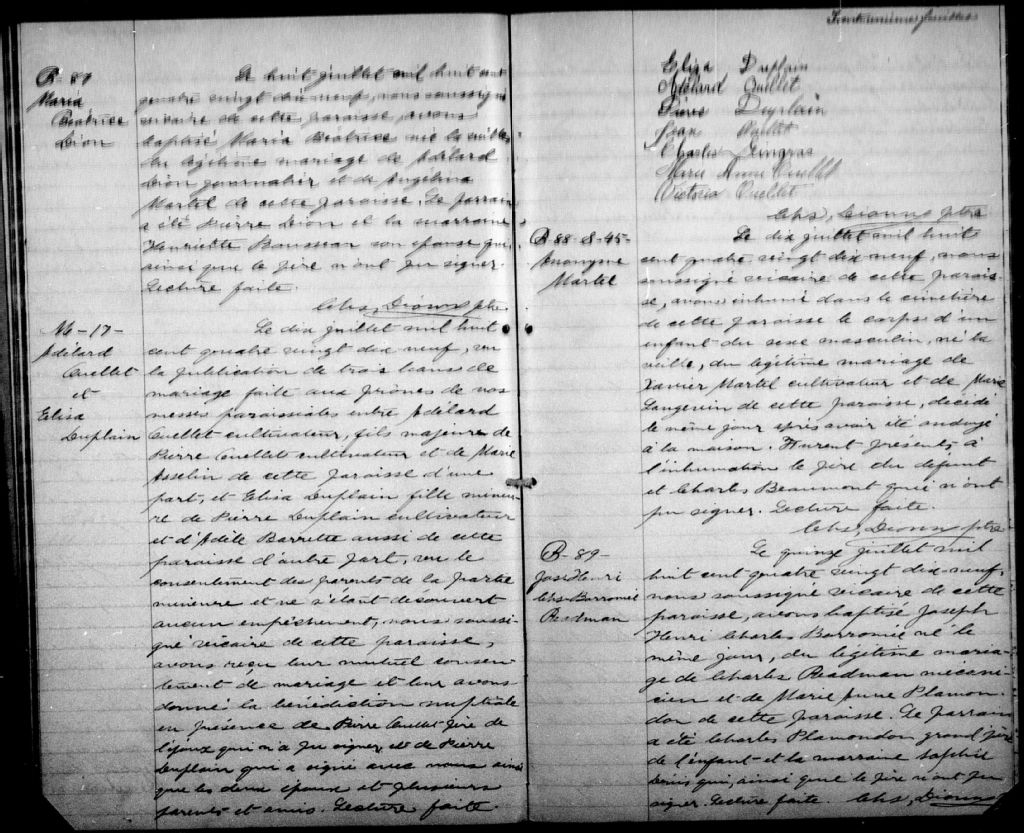 B-87
Maria
Beatrice
Dion
Le huit juillet mil huit cent
quatre vingt dix neuf, nous soussigné
vicaire de cette paroisse, avons
baptisé Maria Béatrice née la veille
du légitime mariage de Adélard
Dion journalier et de Angélina
Martel de cette paroisse. Le parrain
a été Pierre Dion et la marraine
Henriette Rousseau son épouse qui
ainsi que le père n'ont pu signer.
Lecture faite.
Chs, Dionne ptre
M-17-
Adélard
Ouellet
et
Eliza
Duplain
Le dix juillet mil huit
cent quatre vingt dix neuf, vu
la publication de trois bans de
mariage faite aux prônes de nos
messes paroissiales entre Adélard
Ouellet cultivateur, fils majeure de
Pierre Ouellet cultivateur et de Marie
Asselin de cette paroisse d'une
part, et Eliza Duplain fille mineu-
re de Pierre Duplain cultivateur
et d'Adèle Barrette aussi de cette
paroisse d'autre part, vu le
consentement des parents de la partie
mineure et ne s'étant découvert
aucun empêchement, nous soussi-
gné vicaire de cette paroisse,
avons reçu leur mutuel consen-
tement de mariage et leur avons
donné la bénédiction nuptiale
en présence de Pierre Ouellet père de
l'époux qui n'a pu signer, et de Pierre
Duplain qui a signé avec nous ainsi
que les deux époux et plusieurs
parents et amis. Lecture faite.
feuillet
Eliza Duplain
Adélard Ouellet
Pierre Duplain
Jean Ouellet
Charles Gingras
Marie Anne Ouellet
Victoria Ouellet
Chs, Dionne ptre
B 88-S-45-
Anonyme
Martel
Le dix juillet mil huit
cent quatre vingt dix neuf, nous
soussigné vicaire de cette parois-
se, avons inhumé dans le cimetière
de cette paroisse le corps d'un
enfant du sexe masculin, né la
veille, du légitime mariage de
Xavier Martel cultivateur et de Marie
Langevin de cette paroisse, décédé
le même jour après avoir été ondoyé
à la maison. Furent présents à
l'inhumation le père du défunt
et Charles Beaumont qui n'ont
pu signer. Lecture faite.
Chs, Dionne ptre
B-89-
Jos-Henri
Chs-Borromé
Readman
Le quinze juillet mil
huit cent quatre vingt dix-neuf,
nous soussigné vicaire de cette
paroisse, avons baptisé Joseph
Henri Charles Borromé né le
même jour, du légitime maria-
ge de Charles Readman mécani-
cien et de Marie Anne Plamon-
don de cette paroisse. Le parrain
a été Charles Plamondon grand père
de l'enfant et la marraine Sophie
qui, ainsi que le père n'ont pu
signer. Lecture faite Chs, Dionne